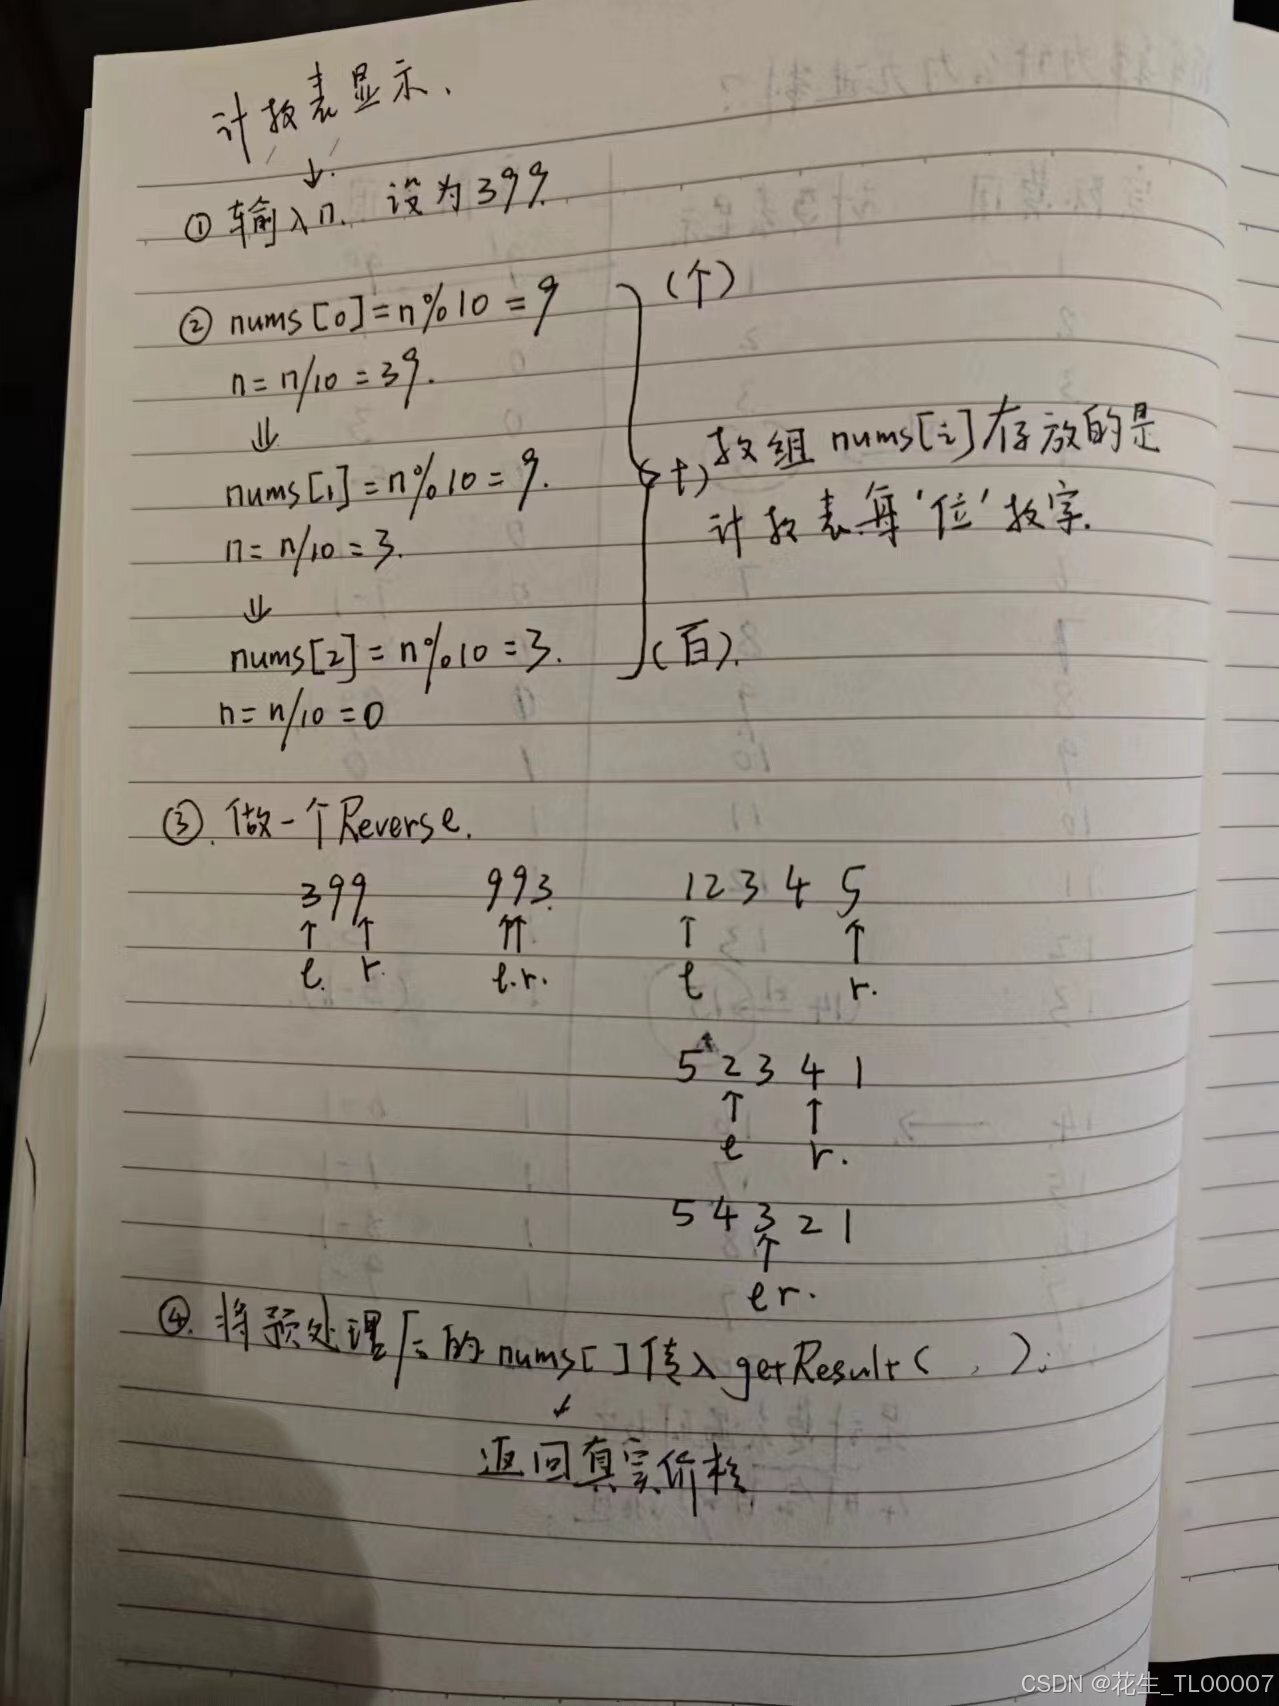 计数表显示.
↓
① 输入n. 设为399.
② nums[0]=n%10=9 (个)
n=n/10=39.
⇓
nums[1]=n%10=9. (十)
n=n/10=3.
数组nums[i]存放的是
计数表每‘位’数字.
⇓
nums[2]=n%10=3. (百).
n=n/10=0
③. 做一个Reverse.
399 993. 12345
↑ ↑ ↑↑ ↑ ↑
l. r. l.r. l r.
52341
↑ ↑
l r.
54321
↑
l r.
④. 将预处理后的nums[]传入getResult( , ).
↓
返回真实价格
CSDN @花生_TL00007